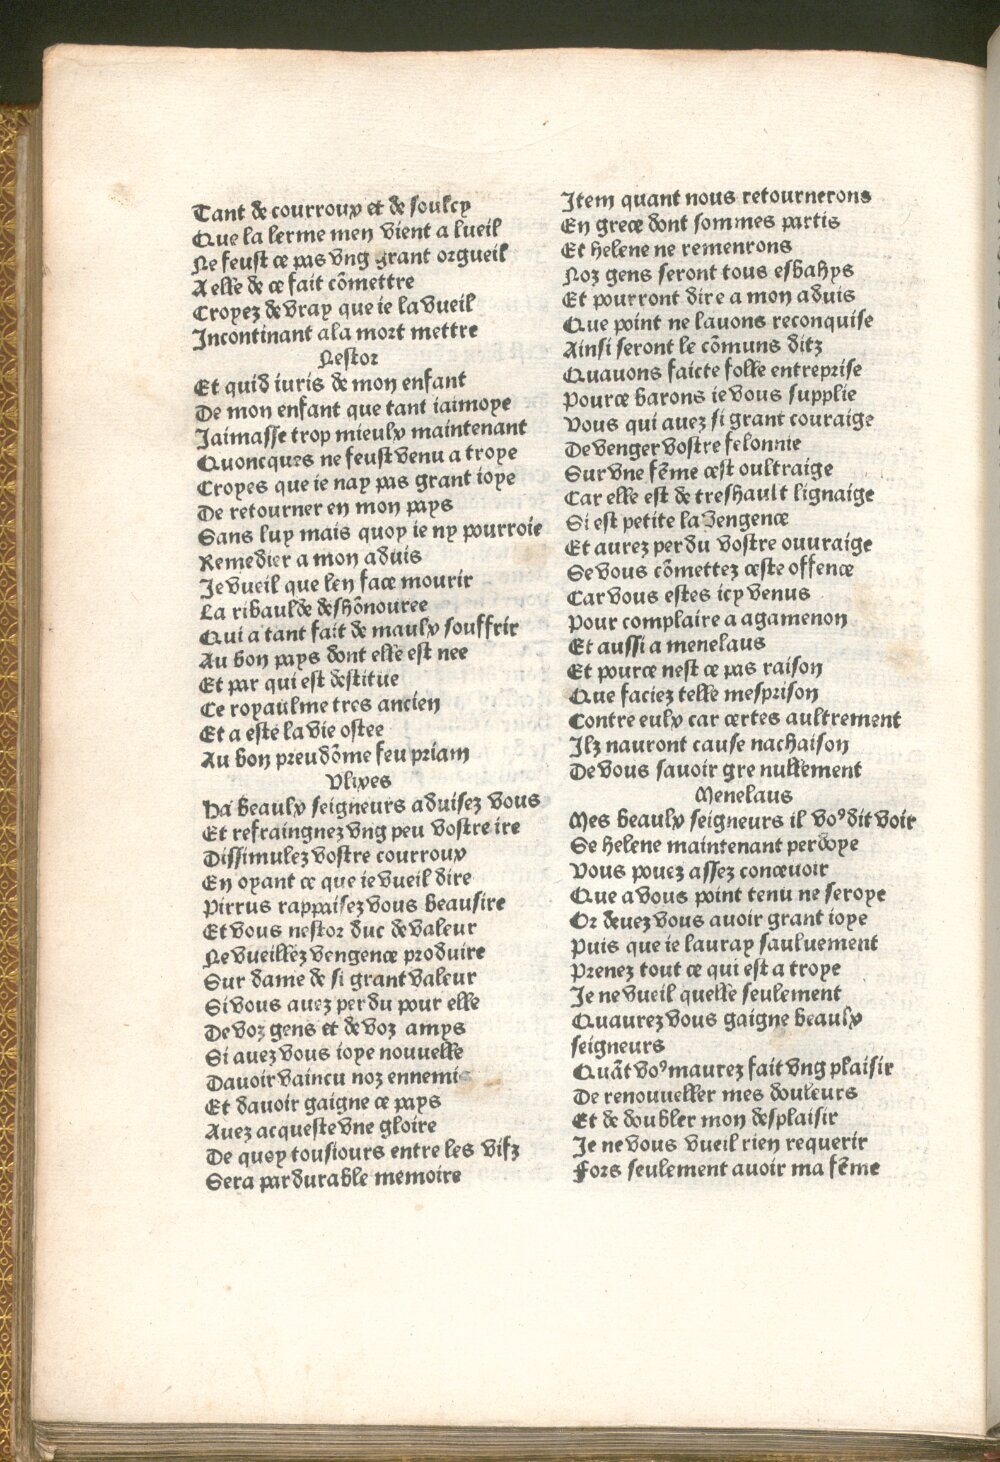 Tant de courroux et de soulcy
Que la lerme men vient a lueil
Ne feust ce pas vng grant orgueil
A elle de ce fait cõmettre
Croyez de vray que ie la vueil
Incontinant ala mort mettre
Nestor
Et quid iuris de mon enfant
De mon enfant que tant iaimoye
Jaimasse trop mieulx maintenant
Quoncques ne feust venu a troye
Croyes que ie nay pas grant ioye
De retourner en mon pays
Sans luy mais quoy ie ny pourroie
Remedier a mon aduis
Je vueil que len face mourir
La ribaulde deshõnouree
Qui a tant fait de maulx souffrir
Au bon pays dont elle est nee
Et par qui est destitue
Ce royaulme tres ancien
Et a este la vie ostee
Au bon preudõme feu priam
Vlixes
Ha beaulx seigneurs aduisez vous
Et refraingnez vng peu vostre ire
Dissimulez vostre courroux
En oyant ce que ie vueil dire
Pirrus rappaisez vous beausire
Et vous nestor duc de valeur
Ne vueillez vengence produire
Sur dame de si grant valeur
Si vous auez perdu pour elle
De voz gens et de voz amys
Si auez vous ioye nouuelle
Dauoir vaincu noz ennemis
Et dauoir gaigne ce pays
Auez acqueste vne gloire
De quoy tousiours entre les vifz
Sera pardurable memoire
Item quant nous retournerons
En grece dont sommes partis
Et helene ne remenrons
Noz gens seront tous esbahys
Et pourront dire a mon aduis
Que point ne lauons reconquise
Ainsi seront le cõmuns ditz
Quauons faicte folle entreprise
Pource barons ie vous supplie
Vous qui auez si grant couraige
De venger vostre felonnie
Sur vne fẽme cest oultraige
Car elle est de treshault lignaige
Si est petite la vengence
Et aurez perdu vostre ouuraige
Se vous cõmettez ceste offence
Car vous estes icy venus
Pour complaire a agamenon
Et aussi a menelaus
Et pource nest ce pas raison
Que faciez telle mesprison
Contre eulx car certes aultrement
Ilz nauront cause nachaison
De vous sauoir gre nullement
Menelaus
Mes beaulx seigneurs il voꝰ dit voir
Se helene maintenant perdoye
Vous pouez assez conceuoir
Que a vous point tenu ne seroye
Or deuez vous auoir grant ioye
Puis que ie lauray sauluement
Prenez tout ce qui est a troye
Je ne vueil quelle seulement
Quaurez vous gaigne beaulx
seigneurs
Quãt voꝰ maurez fait vng plaisir
De renouueller mes douleurs
Et de doubler mon desplaisir
Je ne vous vueil rien requerir
Fors seulement auoir ma fẽme